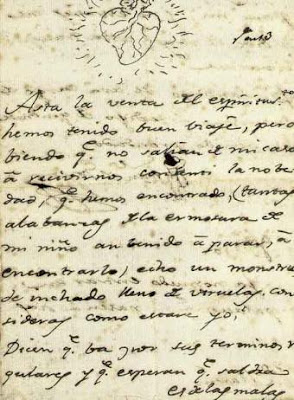 Asta la venta del espiritus.to
hemos tenido buen viaje, pero
biendo q.e no salian de mi casa
à recivirnos con
dad, q.e hemos encontrado, (tantas
alabanzas de la ermosura de
mi niño an benido à parar, à
encontrarlo, echo un monstru
de inchado lleno de viruelas. con
sideras como estare yo,
Dicen q.e ba por sus terminos, r
gulares y q.e esperan q.e saldra
es de las malas